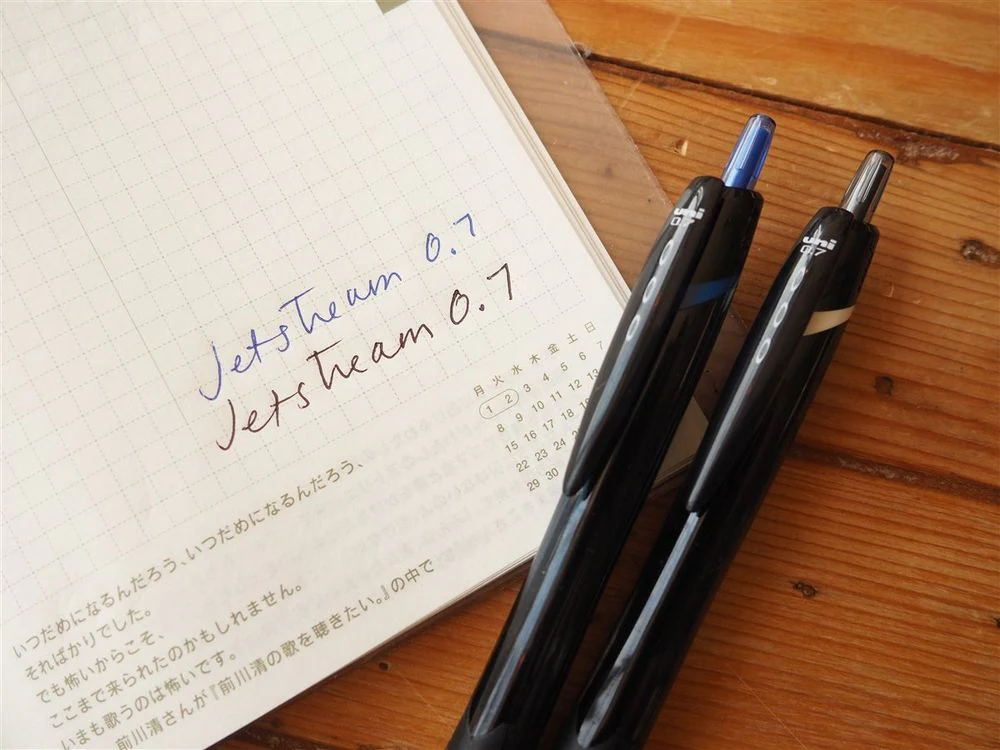 Jetstream 0.7
Jetstream 0.7
月 火 水 木 金 土 日
1 2 3 4 5 6 7
8 9 10 11 12 13
15 16 17 18
22 23 24
29 30
いつだめになるんだろう、いつだめになるんだろう、
そればかりでした。
でも怖いからこそ、
ここまで来られたのかもしれません。
いまも歌うのは怖いです。
前川清さんが『前川清の歌を聴きたい。』の中で
uni
0.7
uni
0.7